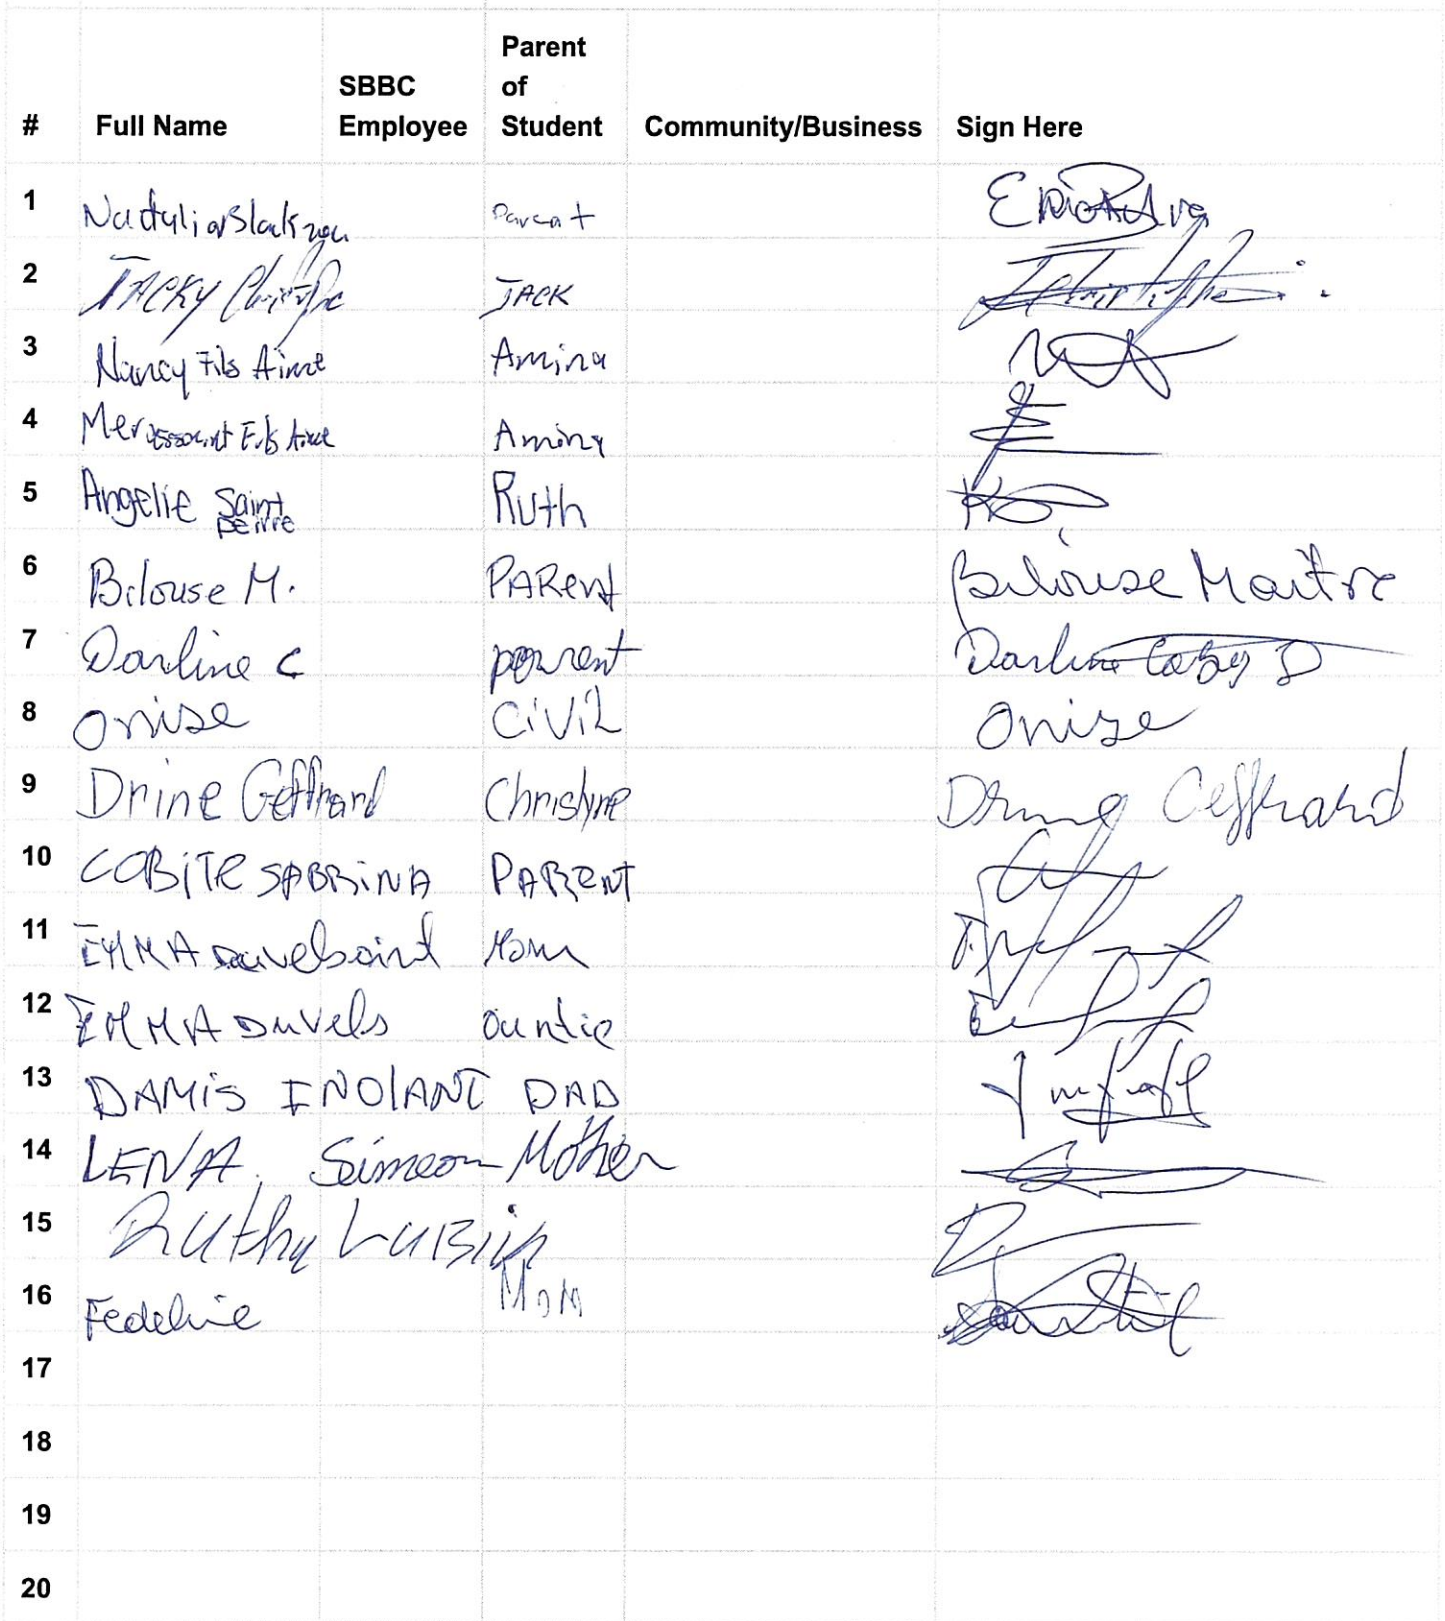 # Full Name SBBC Employee Parent of Student Community/Business Sign Here
1 Parent
2 JACKY JACK
3 Nancy Fils Aime Amina
4 Fils Aime Amina
5 Angelie Saint peirre Ruth
6 Bilouse M. PARent Bilouse Maitre
7 Darline C parent Darline
8 Onise CiViL Onise
9 Drine Geffrard Christyne Drine Geffrard
10 COBiTE SABRiNA PARENT
11 EMMA Mom
12 EMMA Duvels auntie
13 DAMiS INOLANT DAD
14 LENA. Simeon Mother
15 Ruthy LuBin
16 Fedeline MoM
17
18
19
20